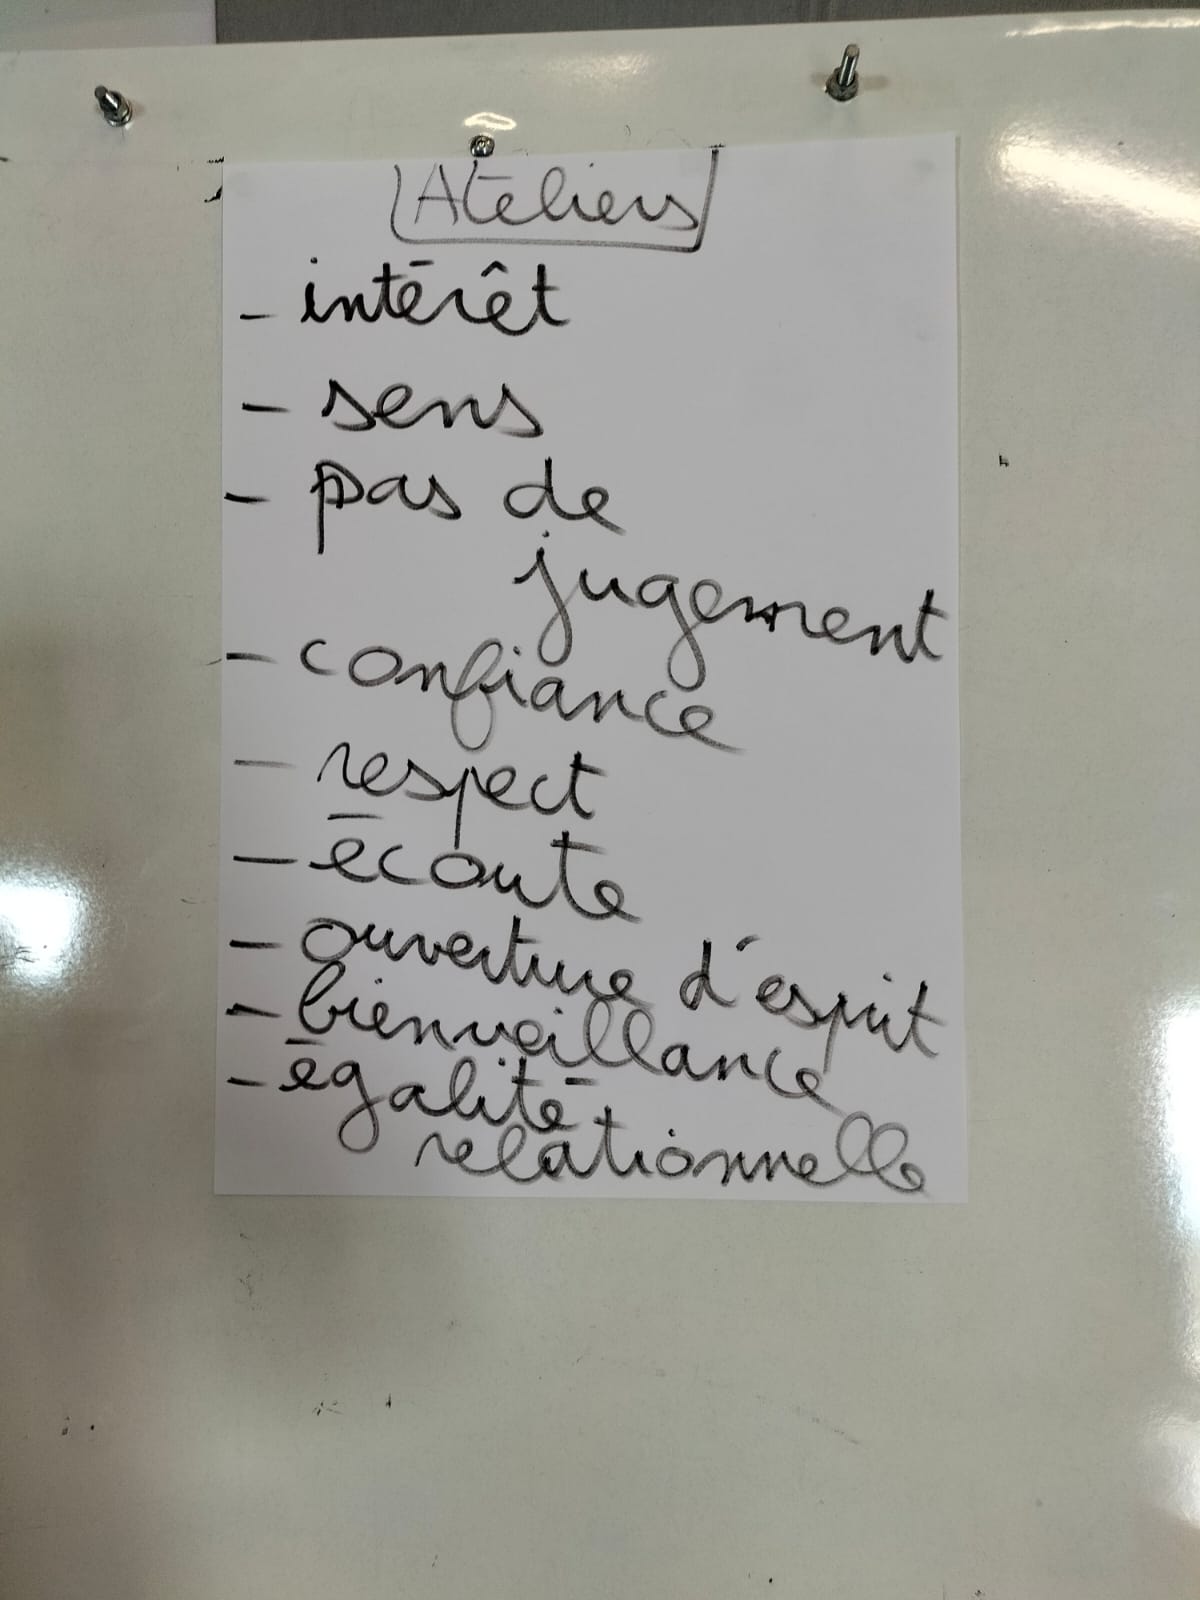 Ateliers
- intérêt
- sens
- pas de
jugement
- confiance
- respect
- écoute
- ouverture d'esprit
- bienveillance
- égalité
relationnelle